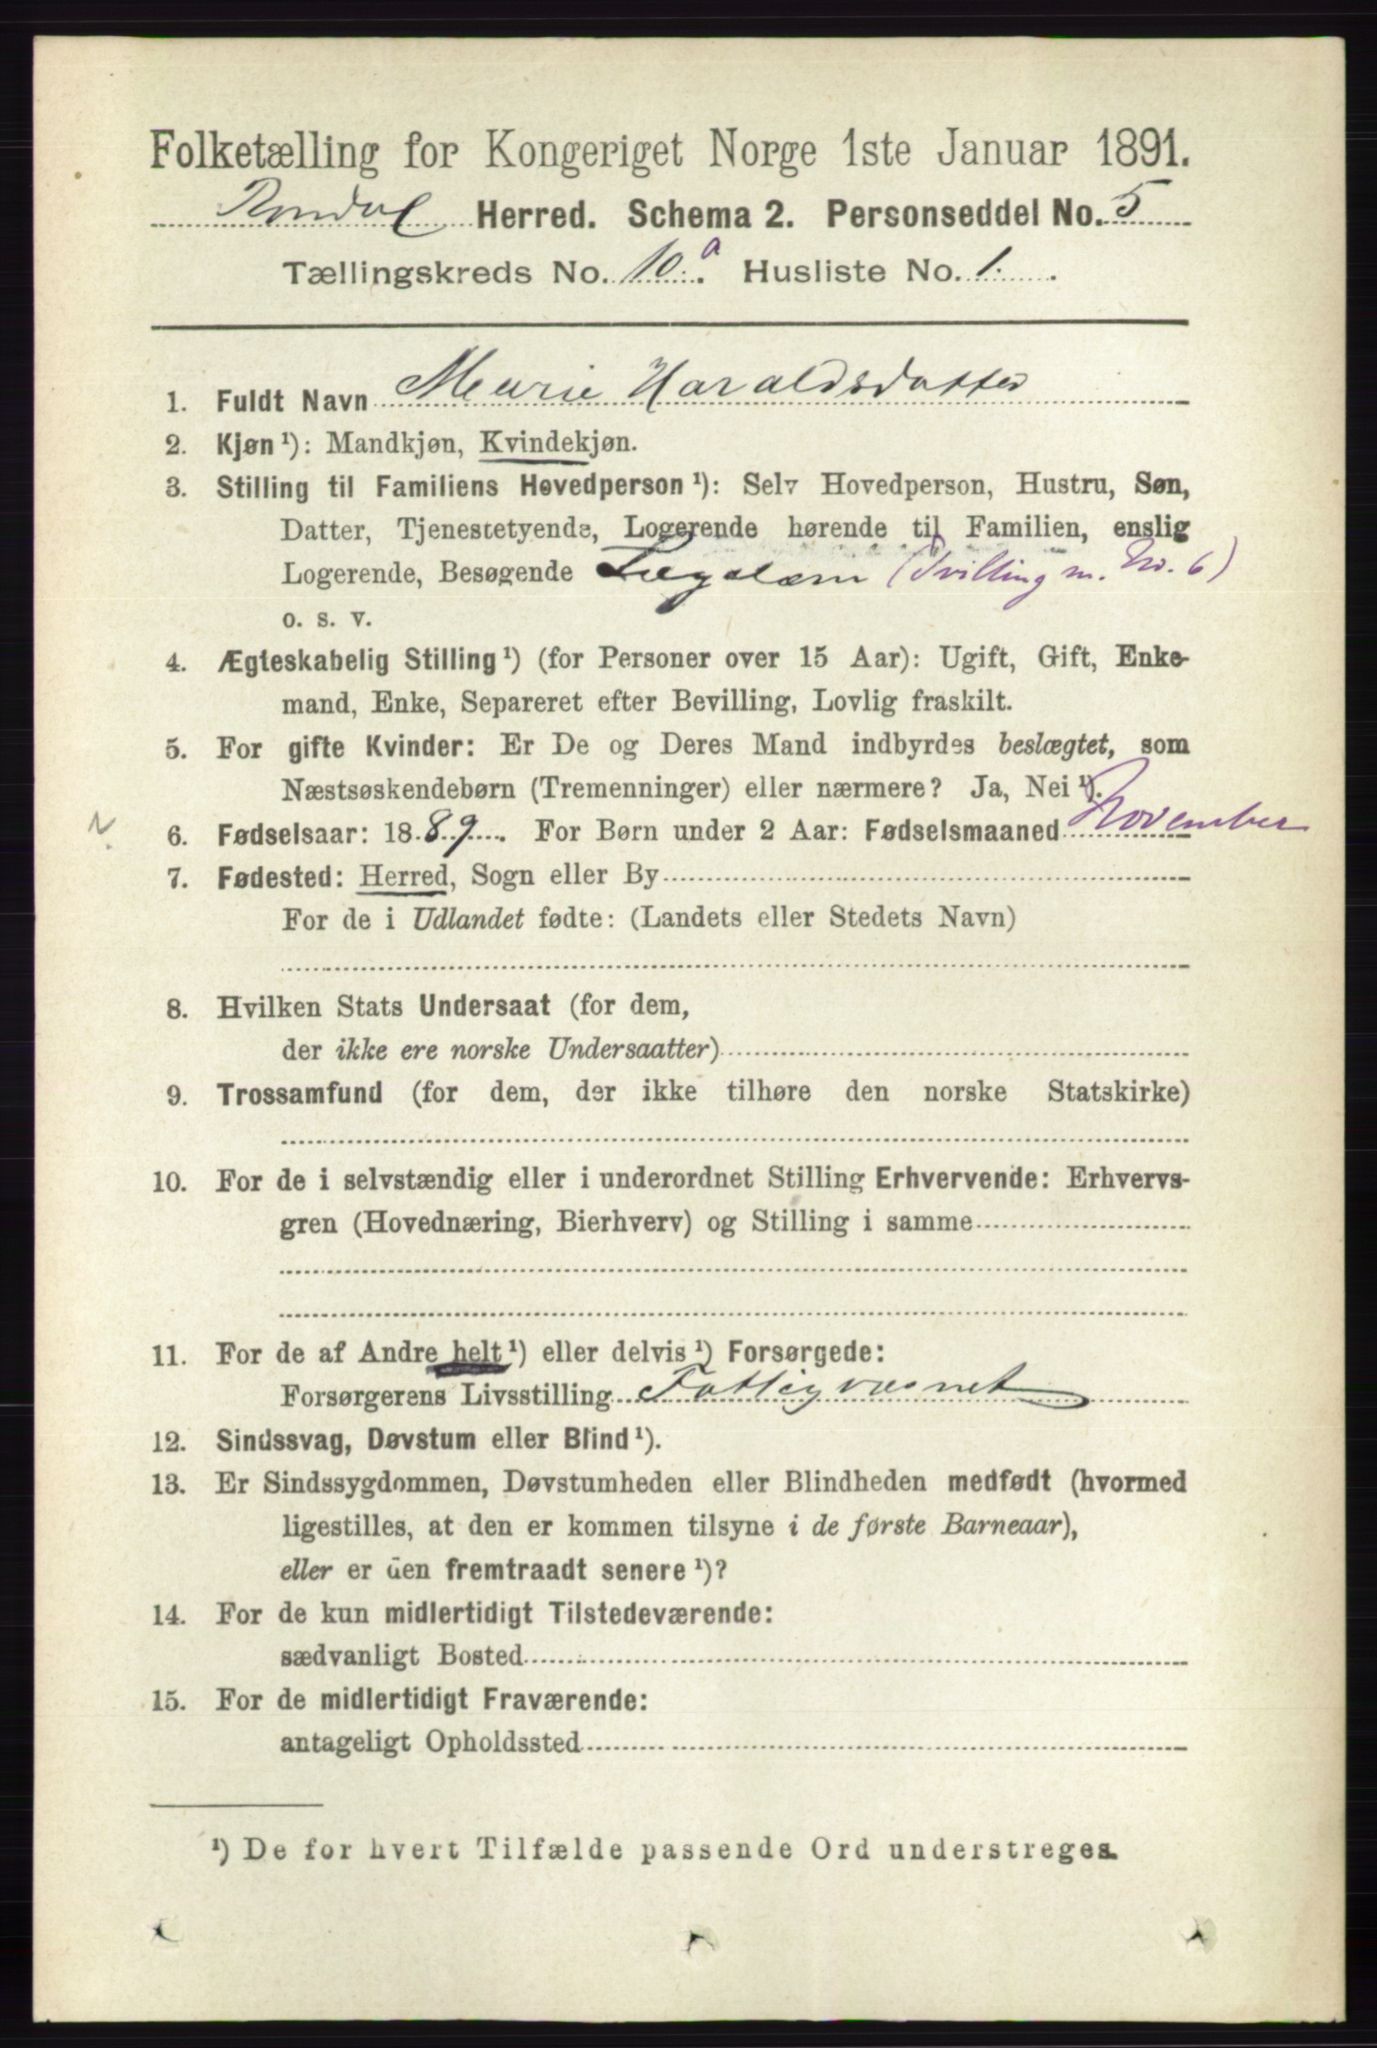 Folketælling for Kongeriget Norge 1ste Januar 1891.
Herred. Schema 2. Personseddel No. 5
Tællingskreds No. 10.a Husliste No. 1.
1. Fuldt Navn Marie Haraldsdatter
2. Kjøn ¹): Mandkjøn, Kvindekjøn.
3. Stilling til Familiens Hovedperson ¹): Selv Hovedperson, Hustru, Søn,
Datter, Tjenestetyende, Logerende hørende til Familien, enslig
Logerende, Besøgende Lægdlem (Tvilling m. No. 6)
o. s. v.
4. Ægteskabelig Stilling ¹) (for Personer over 15 Aar): Ugift, Gift, Enke-
mand, Enke, Separeret efter Bevilling, Lovlig fraskilt.
5. For gifte Kvinder: Er De og Deres Mand indbyrdes beslægtet, som
Næstsøskendebørn (Tremenninger) eller nærmere? Ja, Nei ¹).
6. Fødselsaar: 1889. For Børn under 2 Aar: Fødselsmaaned November
7. Fødested: Herred, Sogn eller By
For de i Udlandet fødte: (Landets eller Stedets Navn)
8. Hvilken Stats Undersaat (for dem,
der ikke ere norske Undersaatter)
9. Trossamfund (for dem, der ikke tilhøre den norske Statskirke)
10. For de i selvstændig eller i underordnet Stilling Erhvervende: Erhvervs-
gren (Hovednæring, Bierhverv) og Stilling i samme
11. For de af Andre helt ¹) eller delvis ¹) Forsørgede:
Forsørgerens Livsstilling Fattigvæsnet
12. Sindssvag, Døvstum eller Blind ¹).
13. Er Sindssygdommen, Døvstumheden eller Blindheden medfødt (hvormed
ligestilles, at den er kommen tilsyne i de første Barneaar),
eller er den fremtraadt senere ¹)?
14. For de kun midlertidigt Tilstedeværende:
sædvanligt Bosted
15. For de midlertidigt Fraværende:
antageligt Opholdssted
¹) De for hvert Tilfælde passende Ord understreges.